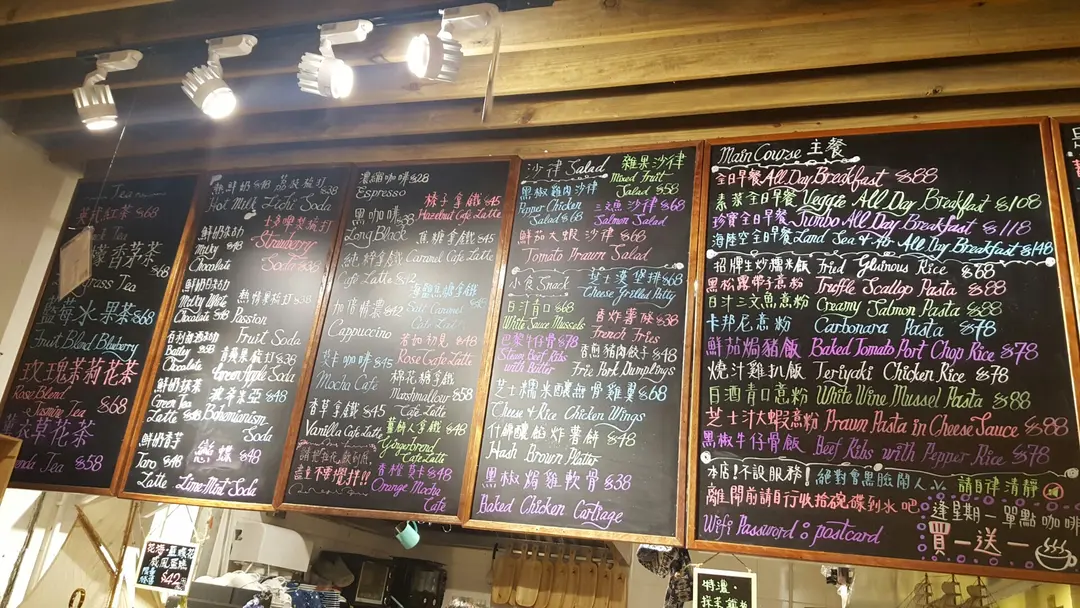 Tea
英式紅茶 $68
檬香茅茶
$68
grass Tea
藍莓水果茶 $68
Fruit Blend Blueberry
玫瑰茉莉花茶
Rose Blend
Jasmine Tea $68
薰衣草花茶
Tea $58
熱鮮奶 $48
Hot Milk
鮮奶朱功
Milky $48
Chocolate
鮮奶
Milky White
Chocolate $48
Bailey $58
Chocolate
鮮奶抹茶
Green Tea
Latte $48
鮮奶香芋
Taro $48
Latte
荔枝梳打
Lichi Soda $38
士多啤梨梳打
Strawberry
Soda $38
熱情果梳打 $38
Passion
Fruit Soda
青蘋果梳打 $38
Green Apple Soda
$48
Bohemianism
Soda
$48
Lime Mint Soda
濃縮咖啡 $28
Espresso
黑咖啡 $38
Long Black
純粹拿鐵
Cafe Latte $42
加倍情濃 $42
Cappuccino
朱古咖啡 $45
Mocha Cafe
香草拿鐵 $45
Vanilla Cafe Latte
千萬不要攪拌!!
榛子拿鐵 $45
Hazelnut Cafe Latte
焦糖拿鐵 $45
Caramel Cafe Latte
海鹽焦糖拿鐵
Salt Caramel
Cafe Latte
若如初見 $48
Rose Cafe Latte
棉花糖拿鐵
Marshmallow $58
Cafe Latte
薑餅人拿鐵 $48
Gyngerbread
Cafe Latte
香橙真朱 $48
Orange Mocha
Cafe
沙律 Salad
黑椒雞肉沙律
Pepper Chicken
Salad $68
鮮茄大蝦沙律 $68
Tomato Prawn Salad
雜果沙律
Mixed Fruit
Salad $58
三文魚沙律 $68
Salmon Salad
小食 Snack
白汁青口 $68
White Sauce Mussels
巴黎牛仔骨 $78
Steam Beef Ribs
with Butter
芝士漢堡排 $68
Cheese Grilled Patty
香炸薯條 $38
French Fries
香煎豬肉餃子 $48
Fric Pork Dumplings
芝士糯米釀無骨雞翼 $68
Cheese & Rice Chicken Wings
什錦釀餡炸薯餅 $48
Hash Brown Platter
黑椒焗雞軟骨 $38
Baked Chicken Cartiage
Main Course 主餐
全日早餐 All Day Breakfast $88
素菜全日早餐 Veggie All Day Breakfast $108
珍寶全日早餐 Jumbo All Day Breakfast $118
海陸空全日早餐 Land Sea & Air All Day Breakfast $148
招牌生炒糯米飯 Fried Glutinous Rice $68
黑松露帶子意粉 Truffle Scallop Pasta $88
白汁三文魚意粉 Creamy Salmon Pasta $88
卡邦尼意粉 Carbonara Pasta $78
鮮茄焗豬飯 Baked Tomato Port Chop Rice $78
燒汁雞扒飯 Teriyaki Chicken Rice $78
白酒青口意粉 White Wine Mussel Pasta $88
芝士汁大蝦意粉 Prawn Pasta in Cheese Sauce $88
黑椒牛仔骨飯 Beef Ribs with Pepper Rice $78
本店!不設服務! 絕對會黑臉關人
請自律清靜
離開前請自行收拾碗碟到水吧
Wifi Password : postcard
逢星期一單點咖啡
買一送一
$42
特濃